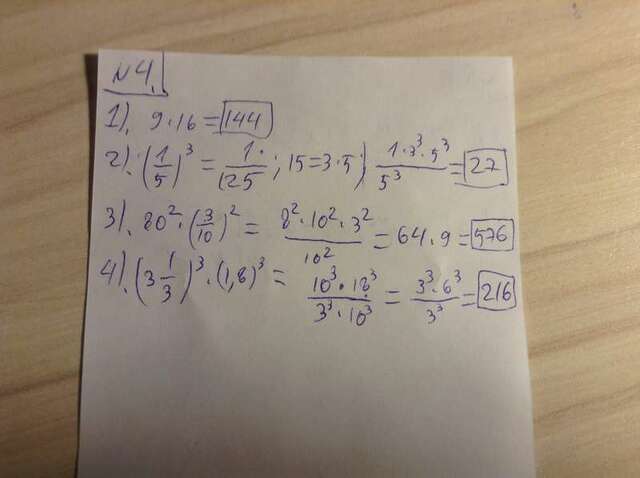 №4.
1). 9·16=144
2). (1/5)³ = 1/125; 15=3·5; 1·3³·5³/5³=27
3). 80²·(3/10)² = 8²·10²·3²/10² = 64·9=576
4). (3 1/3)³·(1,8)³ = 10³·18³/3³·10³ = 3³·6³/3³=216